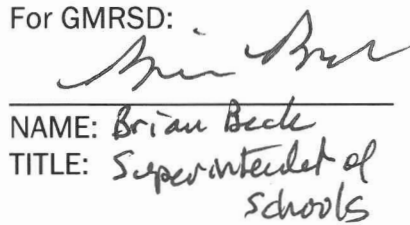 For GMRSD:
NAME: Brian Beck
TITLE: Superintendet of
Schools